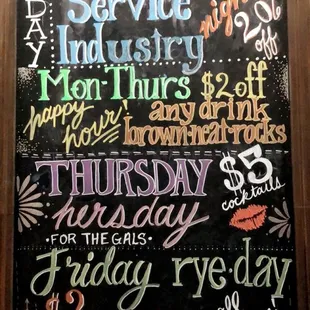 DAY
Service
Industry
night
20%
off
Mon-Thurs $2 off
happy
hour!
any drink
brown-neat-rocks
THURSDAY
hersday
•FOR THE GALS•
$5
cocktails
Friday rye-day
$2
all